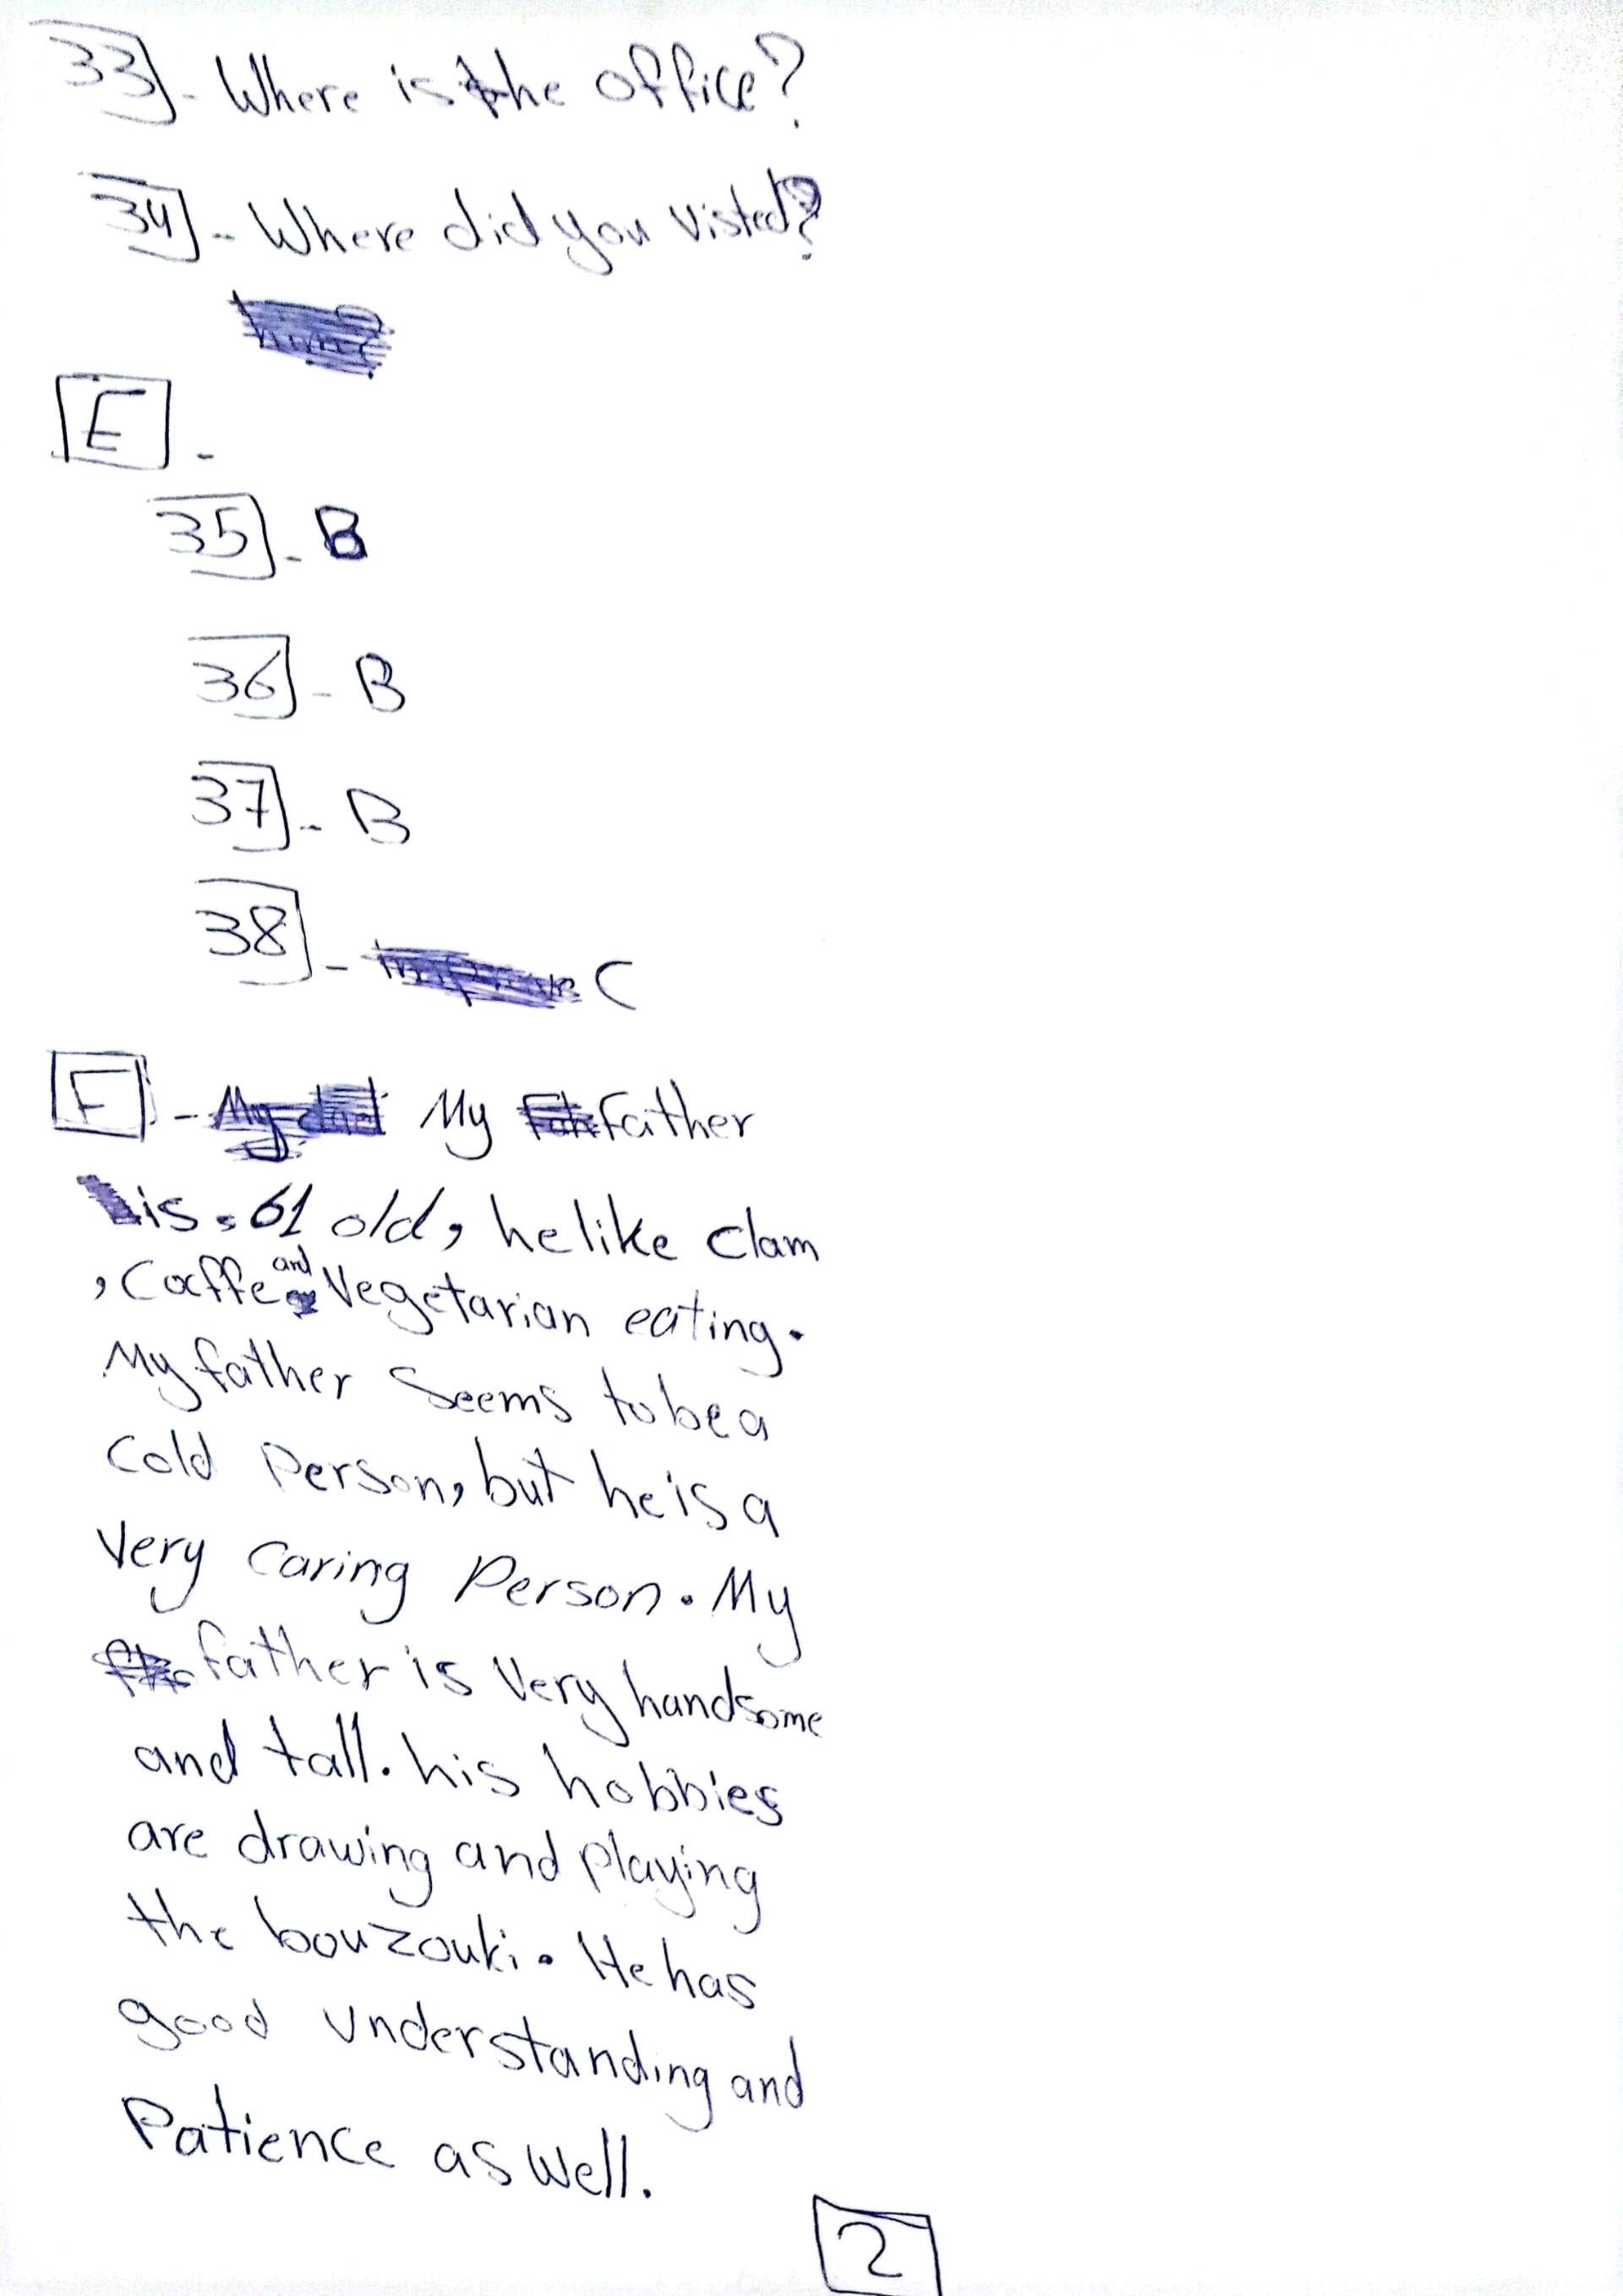 33]- Where is the office?
34]- Where did you visted?
E -
35]- B
36]- B
37]- B
38]- C
F - My Father
is 61 old, he like clam
, Caffe and Vegetarian eating.
My father Seems to be a
Cold Person, but he is a
Very Caring Person. My
father is Very handsome
and tall. his hobbies
are drawing and playing
the bouzouki. He has
good Understanding and
Patience as well.
2